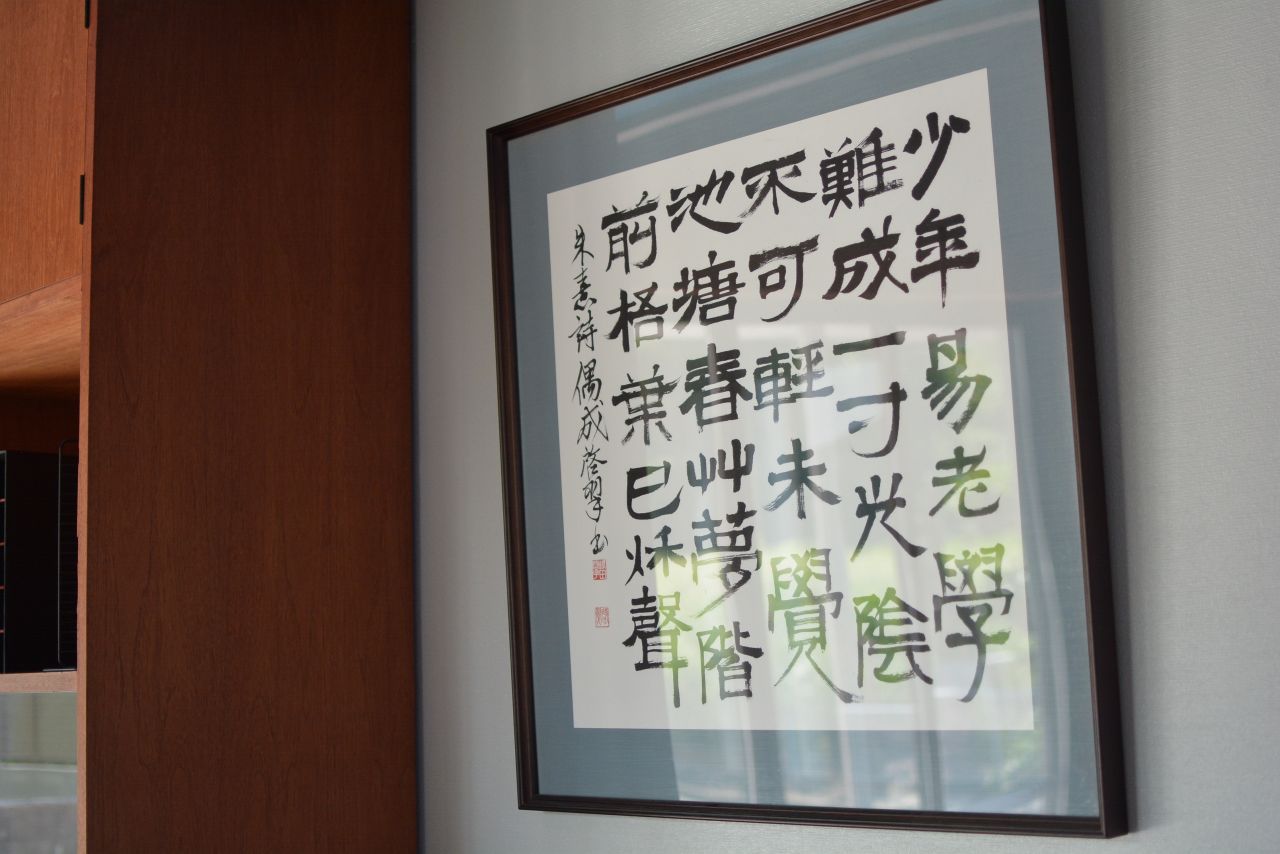 少年易老學
難成一寸光陰
不可輕未覺
池塘春艸夢階
前格葉已秌聲
朱熹詩偶成啓翠书